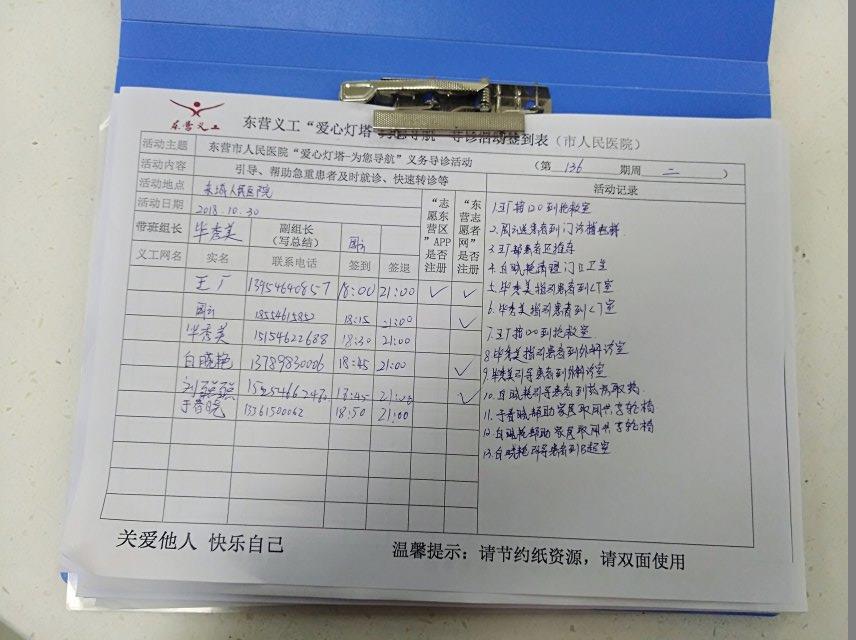 东营义工
东营义工“爱心灯塔-为您导航”导诊活动签到表（市人民医院）
活动主题 东营市人民医院“爱心灯塔-为您导航”义务导诊活动 （第 136 期周 二 ）
活动内容 引导、帮助急重患者及时就诊、快速转诊等
活动地点 东城人民医院
活动日期 2018.10.30
带班组长 毕秀美 副组长（写总结）
义工网名 实名 联系电话 签到 签退 “志愿东营区”APP是否注册 “东营志愿者网”是否注册
王厂 13954640857 18:00 21:00 ✓ ✓
18554615852 18:15 21:00 ✓
毕秀美 15154622688 18:30 21:00
白晓艳 13789830006 18:45 21:00 ✓
刘强强 18:45 21:00 ✓
于春晓 13361500062 18:50 21:00
活动记录
1.王厂指120到抢救室
2.患者到门诊
3.王厂患者还推车
4.白晓艳清理门口卫生
5.毕秀美指引患者到CT室
6.毕秀美指引患者到CT室
7.王厂指120到抢救室
8.毕秀美指引患者到外科诊室
9.毕秀美引导患者到外科诊室
10.白晓艳引导患者到药房取药
11.于春晓帮助家属取用共享轮椅
12.白晓艳帮助家属取用共享轮椅
13.白晓艳引导患者到B超室
关爱他人 快乐自己
温馨提示：请节约纸资源，请双面使用